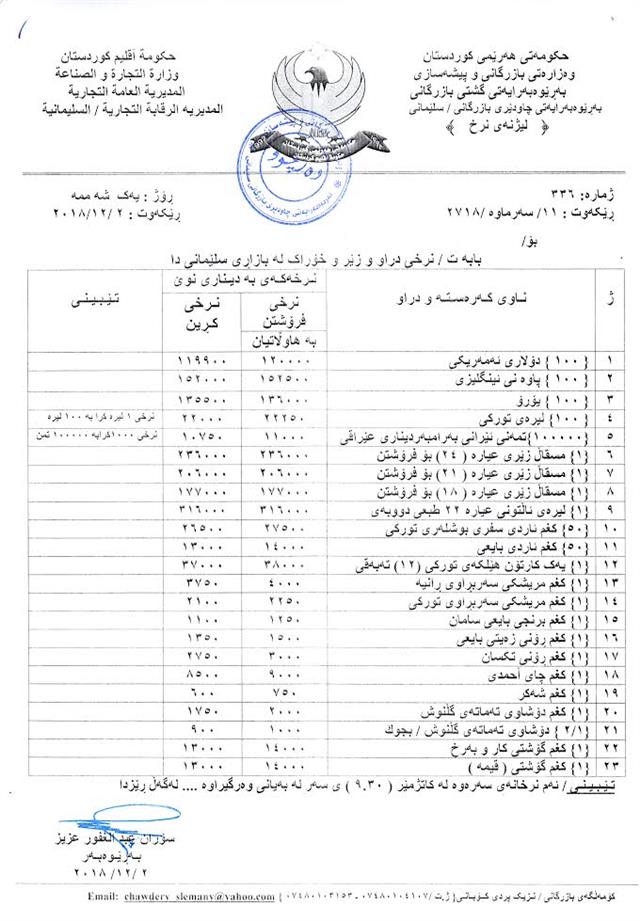 حكومەتی هەرێمی كوردستان
وەزارەتی بازرگانی و پیشەسازی
بەڕێوەبەرایەتی گشتی بازرگانی
بەڕێوەبەرایەتی چاودێری بازرگانی / سلێمانی
﴿ لیژنەی نرخ ﴾
حكومة أقليم كوردستان
وزارة التجارة و الصناعة
المديرية العامة التجارية
المديريه الرقابة التجارية / السليمانية
ژمارە: ٣٣٦
ڕێكەوت : ١١/ سەرماوە /٢٧١٨
ڕۆژ : یەک شە ممە
ڕێكەوت : ٢ /٢٠١٨/١٢
بۆ/
بابە ت / نرخی دراو و زێر و خۆراک لە بازاڕی سلێمانی دا
ژ ناوی كەرەستە و دراو نرخەكەی بە دیناری نوێ تێبینی
نرخی فرۆشتن بە هاوڵاتیان نرخی كڕین
١ { ١٠٠ } دۆلاری ئەمەریكی ١٢٠٠٠٠ ١١٩٩٠٠
٢ { ١٠٠ } پاوە نی ئینگلیزی ١٥٢٥٠٠ ١٥٢٠٠٠
٣ { ١٠٠ } یۆرۆ ١٣٦٠٠٠ ١٣٥٥٠٠
٤ { ١٠٠} لیرەی توركی ٢٢٢٥٠ ٢٢٠٠٠ نرخی ١ لیرە كرا بە ١٠٠ لیرە
٥ {١٠٠٠٠٠}تمەنی ئێرانی بەرامبەردیناری عێراقی ١١٠٠٠ ١٠٧٥٠ نرخی ١٠٠٠كرایە ١٠٠٠٠٠ تمن
٦ {١} مسقاڵ زێری عیارە ( ٢٤ ) بۆ فرۆشتن ٢٣٦٠٠٠ ٢٣٦٠٠٠
٧ {١} مسقاڵ زێری عیارە ( ٢١ ) بۆ فرۆشتن ٢٠٦٠٠٠ ٢٠٦٠٠٠
٨ {١} مسقاڵ زێری عیارە ( ١٨ ) بۆ فرۆشتن ١٧٧٠٠٠ ١٧٧٠٠٠
٩ {١} لیرەی ئاڵتونی عیارە ٢٢ طبعی دووبەی ٣١٦٠٠٠ ٣١٦٠٠٠
١٠ {٥٠} كغم ئاردی سفری بوشلەری توركی ٢٧٥٠٠ ٢٦٥٠٠
١١ {٥٠} كغم ئاردی بایعی ١٤٠٠٠ ١٣٠٠٠
١٢ {١} یەک كارتۆن هێلكەی توركی (١٢) تەبەقی ٣٨٠٠٠ ٣٧٠٠٠
١٣ {١} كغم مریشكی سەربڕاوی ڕانیە ٤٠٠٠ ٣٧٥٠
١٤ {١} كغم مریشكی سەربڕاوی توركی ٢٢٥٠ ٢١٠٠
١٥ {١} كغم برنجی بایعی سامان ١٢٥٠ ١١٠٠
١٦ {١} كغم ڕۆنی زەیتی بایعی ١٥٠٠ ١٣٥٠
١٧ {١} كغم ڕۆنی تكسان ٣٠٠٠ ٢٧٥٠
١٨ {١} كغم چای أحمدی ٩٠٠٠ ٨٥٠٠
١٩ {١} كغم شەكر ٧٥٠ ٦٠٠
٢٠ {١} كغم دۆشاوی تەماتەی گڵنوش ٢٠٠٠ ١٧٥٠
٢١ {٢/١ } دۆشاوی تەماتەی گڵنوش / بچوك ١٠٠٠ ٩٠٠
٢٢ {١} كغم گۆشتی كار و بەرخ ١٤٠٠٠ ١٣٠٠٠
٢٣ {١} كغم گۆشتی ( قیمە ) ١٤٠٠٠ ١٣٠٠٠
تێبینی/ ئەم نرخانەی سەرەوە لە كاتژمێر ( ٩.٣٠ ) ی سەر لە بەیانی وەرگیراوە .... لەگەڵ ڕێزدا
سۆران عبد الغفور عزیز
بەڕێوەبەر
٢ /٢٠١٨/١٢
كۆمەڵگەی بازرگانی / نزیک پردی كۆبانی{ ژ.ت /٠٧٤٨٠١٠٤١٠٧ -٠٧٤٨٠١٠٣١٥٣ }
Email: chawdery_slemany@yahoo.com